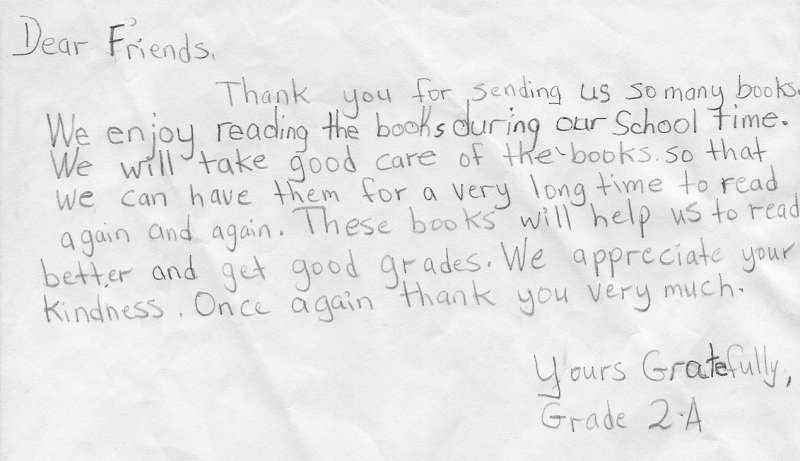 Dear Friends.
Thank you for sending us so many books.
We enjoy reading the books during our School time.
We will take good care of the books. so that
we can have them for a very long time to read
again and again. These books will help us to read
better and get good grades. We appreciate your
kindness. Once again thank you very much.
Yours Gratefully,
Grade 2-A